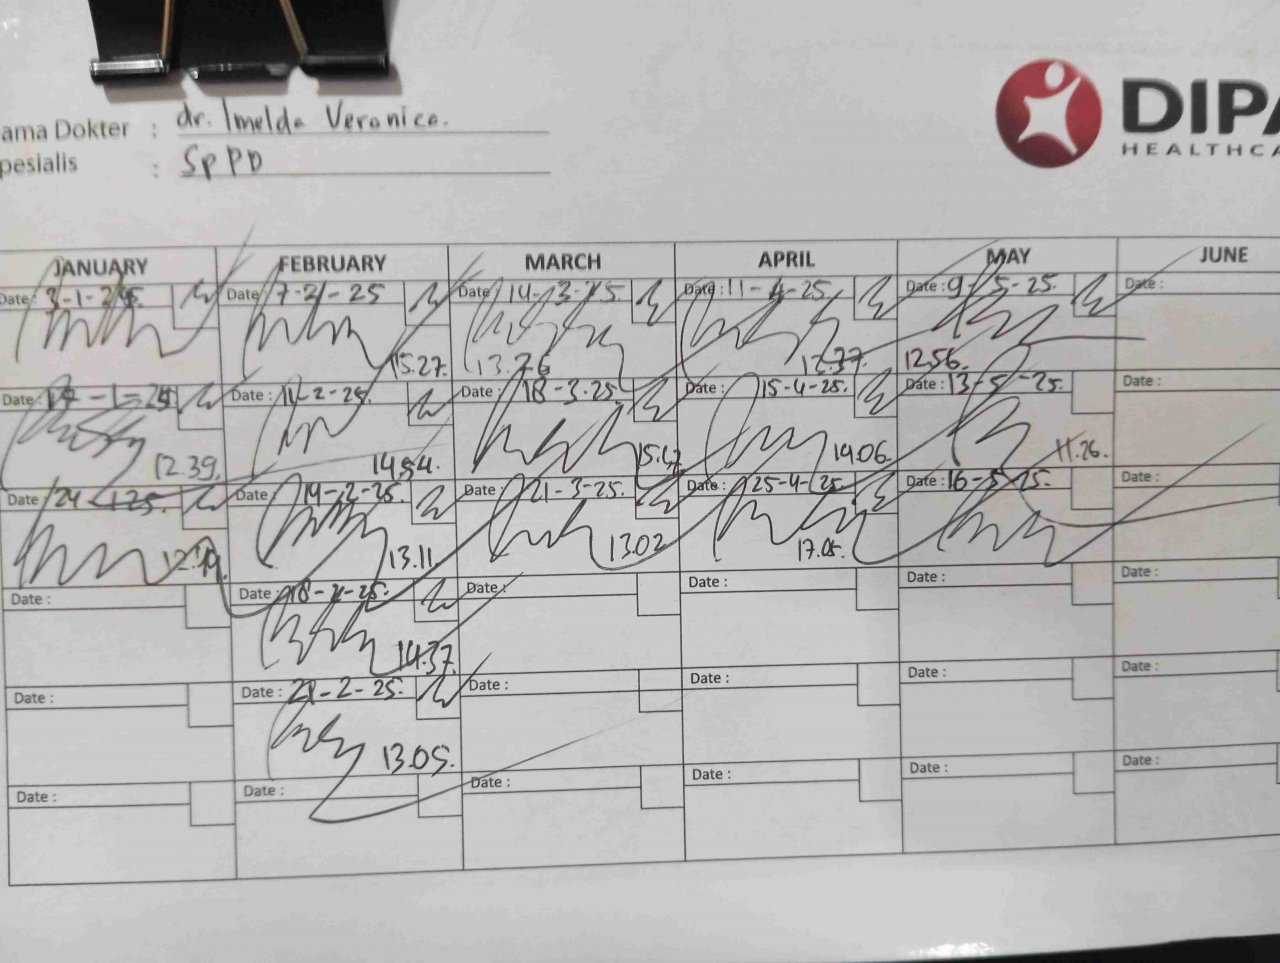 ama Dokter : dr. Imelda Veronica.
pesialis : SpPD
DIPA
HEALTHCA
JANUARY FEBRUARY MARCH APRIL MAY JUNE
Date: 3-1-25. Date: 7-2-25 Date: 14-3-25. Date: 11-4-25. Date: 9-5-25. Date:
15.27. 13.26 12.37. 12.56.
Date: Date: 11-2-25. Date: 18-3-25. Date: 15-4-25. Date: 13-5-25. Date:
12.39. 14.54. 14.06. 11.26.
Date: 24-1-25. Date: 14-2-25. Date: 21-3-25. Date: 25-4-25. Date: 16-5-25. Date:
13.11. 13.02 17.05.
Date: Date: 18-2-25. Date: Date: Date: Date:
14.37.
Date: Date: 21-2-25. Date: Date: Date: Date:
13.05.
Date: Date: Date: Date: Date: Date: